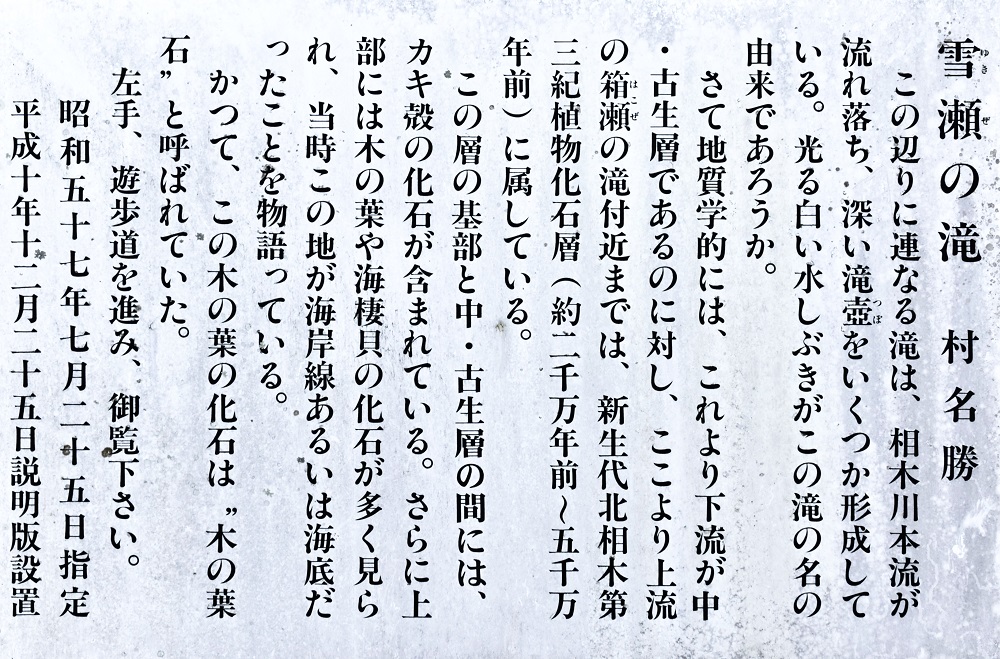 雪瀬の滝　村名勝
この辺りに連なる滝は、相木川本流が
流れ落ち、深い滝壺をいくつか形成して
いる。光る白い水しぶきがこの滝の名の
由来であろうか。
さて地質学的には、これより下流が中
・古生層であるのに対し、ここより上流
の箱瀬の滝付近までは、新生代北相木第
三紀植物化石層（約二千万年前〜五千万
年前）に属している。
この層の基部と中・古生層の間には、
カキ殻の化石が含まれている。さらに上
部には木の葉や海棲貝の化石が多く見ら
れ、当時この地が海岸線あるいは海底だ
ったことを物語っている。
かつて、この木の葉の化石は〝木の葉
石〟と呼ばれていた。
左手、遊歩道を進み、御覧下さい。
昭和五十七年七月二十五日指定
平成十年十二月二十五日説明版設置